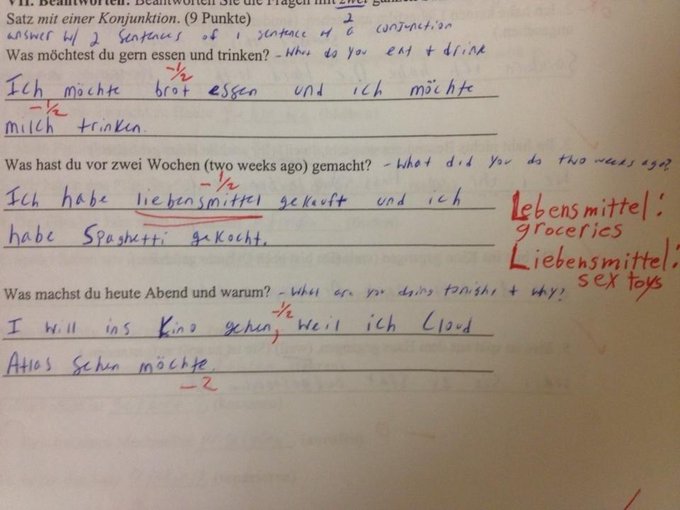 VII. Beantworten. Beantworten Sie die Fragen mit zwei ganzen
Satz mit einer Konjunktion. (9 Punkte) 2
answer w/ 2 sentences of 1 sentence w/ a conjunction
Was möchtest du gern essen und trinken? - What do you eat + drink
-1/2
Ich möchte brot essen und ich möchte
-1/2
milch trinken.
Was hast du vor zwei Wochen (two weeks ago) gemacht? - What did you do two weeks ago?
-1/2
Ich habe liebensmittel gekauft und ich
habe Spaghetti gekocht.
Lebensmittel:
groceries
Liebensmittel:
sex toys
Was machst du heute Abend und warum? - What are you doing tonight + why?
-1/2
I will ins Kino gehen, weil ich Cloud
Atlas sehen möchte.
-2